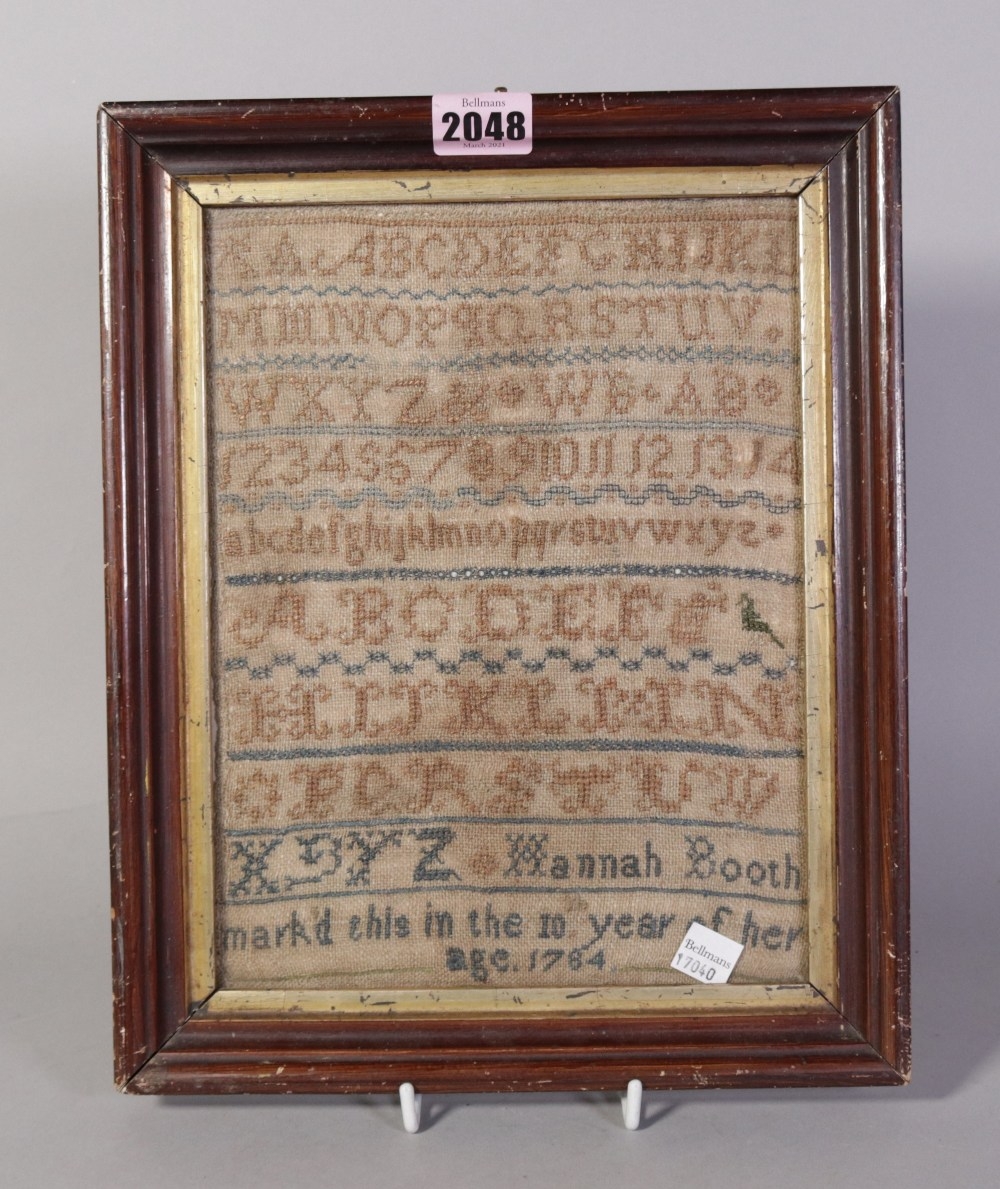 Bellmans
2048
March 2021
A A B C D E F G H I J K L
M N O P Q R S T U V
W X Y Z & W B A B
1 2 3 4 5 6 7 8 9 10 11 12 13 14
a b c d e f g h i j k l m n o p q r s t u v w x y z
A B C D E F G
H I J K L M N
O P Q R S T U V
X Y Z Hannah Booth
mark'd this in the 10 year of her
age. 1784
Bellmans
17040